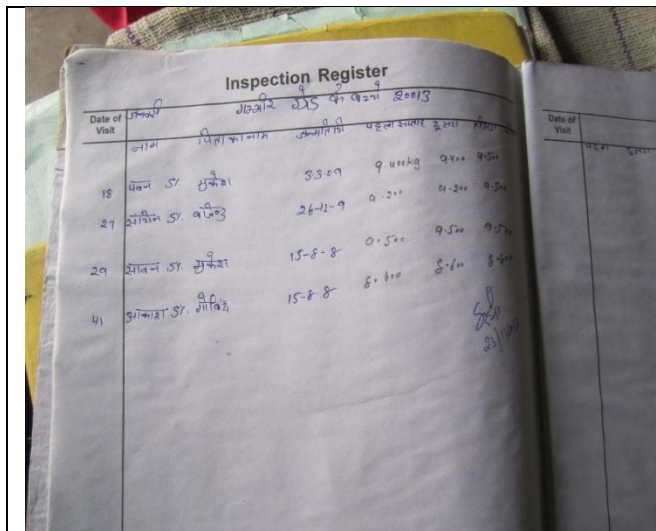 Inspection Register
Date of Visit
जनवरी गम्भीर ग्रेड के बच्चे 20013
नाम पिता का नाम जन्मतिथि पहला सप्ताह दूसरा
18 पवन S/. मुकेश 3.3.09 9.400kg 9.400 9.500
27 सचिन S/. 26-12-9 9-200 9-200 9.300
29 सावन S/. मुकेश 15-8-8 9.500 9.500 9.500
41 आकाश S/. गोविंद 15-8-8 8.600 8.600 8.600